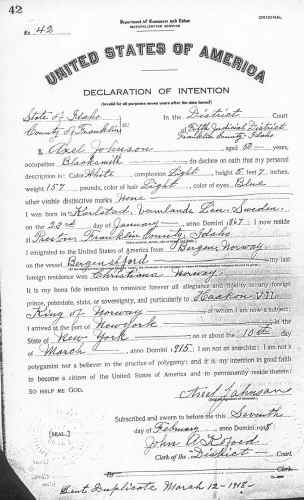 42
ORIGINAL
Department of Commerce and Labor
NATURALIZATION SERVICE
No. 42
UNITED STATES OF AMERICA
DECLARATION OF INTENTION
(Invalid for all purposes seven years after the date hereof)
State of Idaho
County of Franklin
ss:
In the District Court
of Fifth Judicial District
Franklin County, Idaho
I, Axel Johnson, aged 50 years,
occupation Blacksmith, do declare on oath that my personal
description is: Color White, complexion Light, height 5 feet 7 inches,
weight 157 pounds, color of hair Light, color of eyes Blue
other visible distinctive marks None
I was born in Karlstad, Vermlands Län, Sweden
on the 22nd day of January, anno Domini 1867; I now reside
at Preston, Franklin County, Idaho
I emigrated to the United States of America from Bergen, Norway
on the vessel Bergensfjord; my last
foreign residence was Christiania Norway.
It is my bona fide intention to renounce forever all allegiance and fidelity to any foreign
prince, potentate, state, or sovereignty, and particularly to Haakon VII
King of Norway, of whom I am now a subject;
I arrived at the port of New York, in the
State of New York on or about the 10th day
of March, anno Domini 1915; I am not an anarchist; I am not a
polygamist nor a believer in the practice of polygamy; and it is my intention in good faith
to become a citizen of the United States of America and to permanently reside therein:
SO HELP ME GOD.
Axel Johnson
Subscribed and sworn to before me this Seventh
[SEAL]
day of February, anno Domini 1918
John A
Clerk of the District Court.
Sent Duplicate March 12-1918-